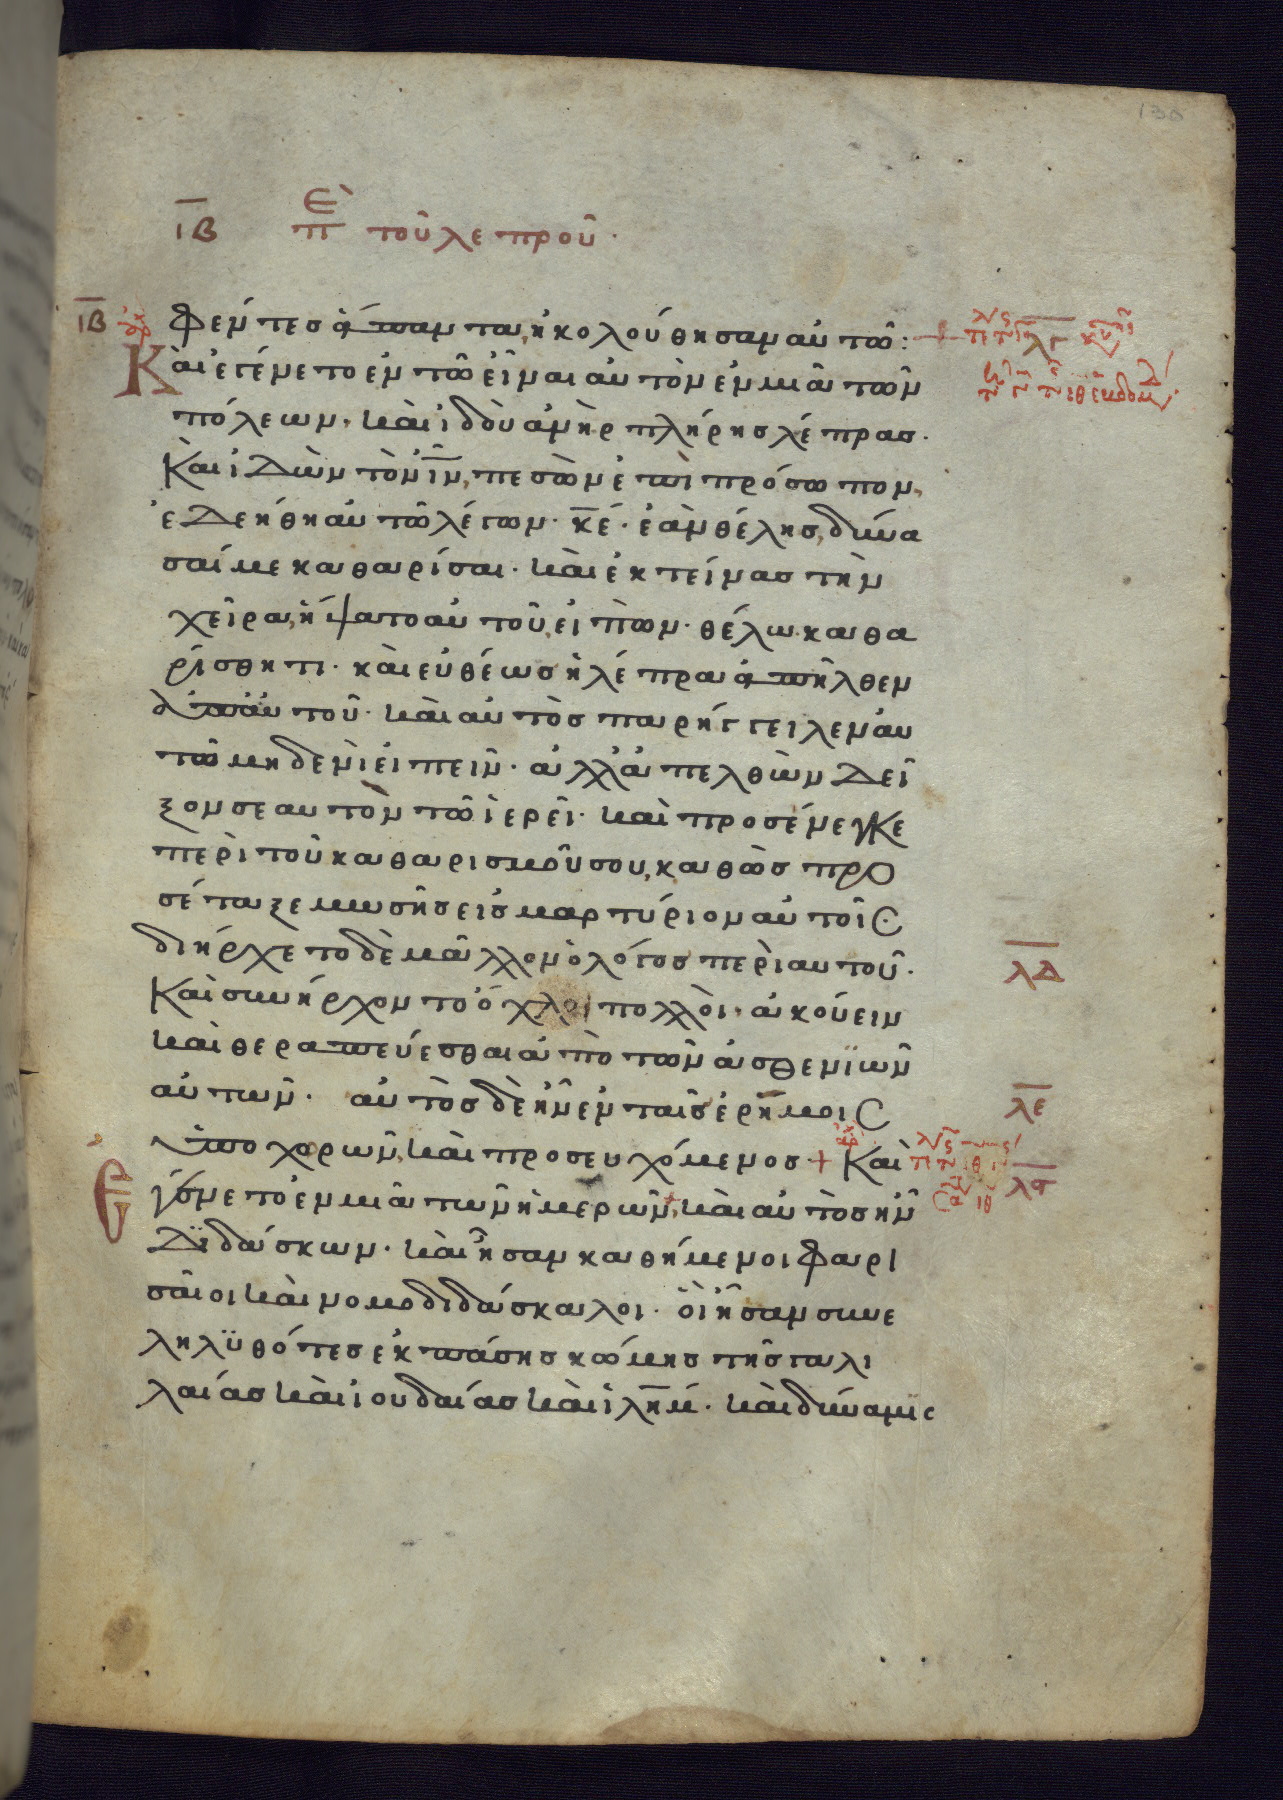 130
ΙΒ πε τοῦ λεπροῦ·
ΙΒ φέντες ἅπαντα, ἠκολούθησαν αὐτῶ:
Καὶ ἐγένετο ἐν τῶ εἶναι αὐτὸν ἐν μιᾶ τῶν
πόλεων· καὶ ἰδοὺ ἀνὴρ πλήρης λέπρας·
Καὶ ἰδὼν τὸν ἰν, πεσὼν ἐπὶ πρόσωπον,
ἐδεήθη αὐτῶ λέγων· κέ· ἐὰν θέλης, δύνα
σαί με καθαρίσαι· καὶ ἐκτείνας τὴν
χεῖρα, ἥψατο αὐτοῦ, εἰπὼν· θέλω· καθα
ρίσθητι· καὶ εὐθέως ἡ λέπρα ἀπῆλθεν
ἀπ' αὐτοῦ· καὶ αὐτὸς παρήγγειλεν αὐ
τῶ μηδενὶ εἰπεῖν· ἀλλὰ ἀπελθὼν δεῖ
ξον σεαυτὸν τῶ ἱερεῖ· καὶ προσένεγκε
περὶ τοῦ καθαρισμοῦ σου, καθὼς προ
σέταξε μωσῆς εἰς μαρτύριον αὐτοῖς
διήρχετο δὲ μᾶλλον ὁ λόγος περὶ αὐτοῦ· λδ
Καὶ συνήρχοντο ὄχλοι πολλοὶ· ἀκούειν
καὶ θεραπεύεσθαι ἀπὸ τῶν ἀσθενϊῶν
αὐτῶν· αὐτὸς δὲ ἦν ἐν ταῖς ἐρήμοις λε
ὑποχωρῶν, καὶ προσευχόμενος + Καὶ λϛ
Ἐγένετο ἐν μιᾶ τῶν ἡμερῶν, καὶ αὐτὸς ἦν
διδάσκων· καὶ ἦσαν καθήμενοι φαρι
σαῖοι καὶ νομοδιδάσκαλοι· οἳ ἦσαν συνε
ληλϋθότες ἐκ πάσης κώμης τῆς γαλι
λαίας καὶ ἰουδαίας καὶ ἰλημ· καὶ δύναμϊς